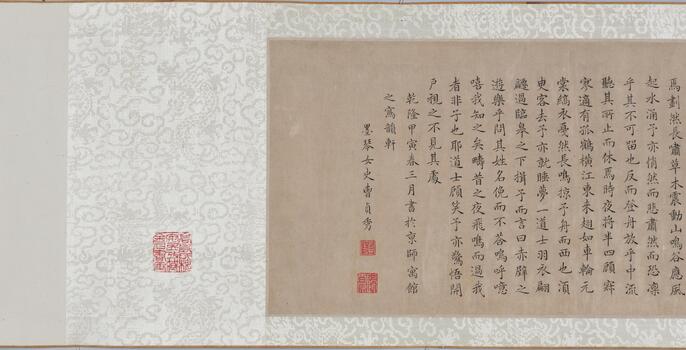 焉劃然長嘯草木震動山鳴谷應風
起水涌予亦悄然而悲肅然而恐凜
乎其不可留也反而登舟放乎中流
聽其所止而休焉時夜將半四顧寂
寥適有孤鶴橫江東來翅如車輪元
裳縞衣戛然長鳴掠予舟而西也須
臾客去予亦就睡夢一道士羽衣翩
躚過臨皋之下揖予而言曰赤壁之
遊樂乎問其姓名俛而不答嗚呼噫
嘻我知之矣疇昔之夜飛鳴而過我
者非子也耶道士顧笑予亦驚悟開
戶視之不見其處
乾隆甲寅春三月書於京師寓館
之寫韻軒
墨琴女史曹貞秀